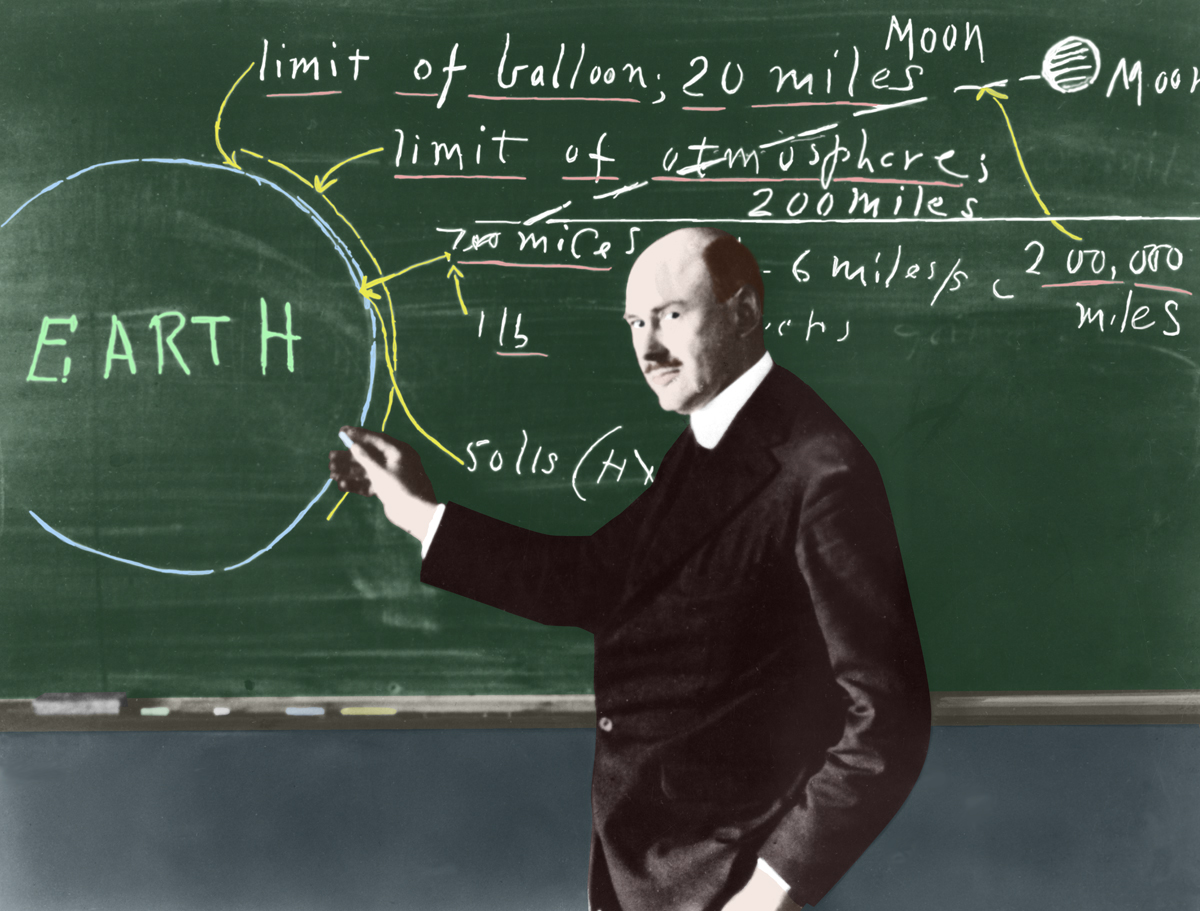 Moon
limit of balloon; 20 miles
Moon
limit of atmosphere;
200 miles
700 miles
- 6 miles/s
200,000
miles
1 lb
EARTH
(H